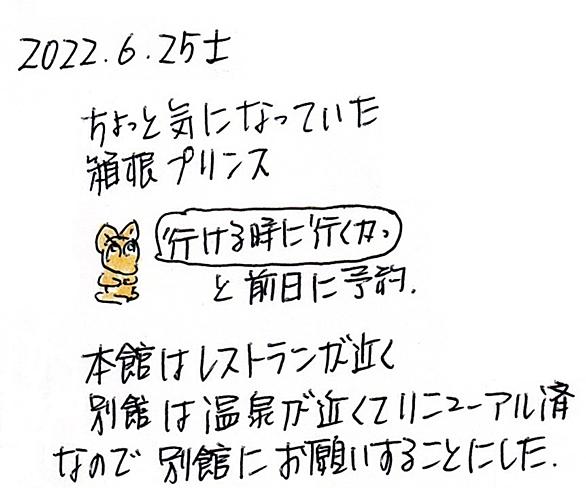 2022.6.25土
ちょっと気になっていた
箱根プリンス
行ける時に行くかっ
と前日に予約.
本館はレストランが近く
別館は温泉が近くてリニューアル済
なので別館にお願いすることにした.